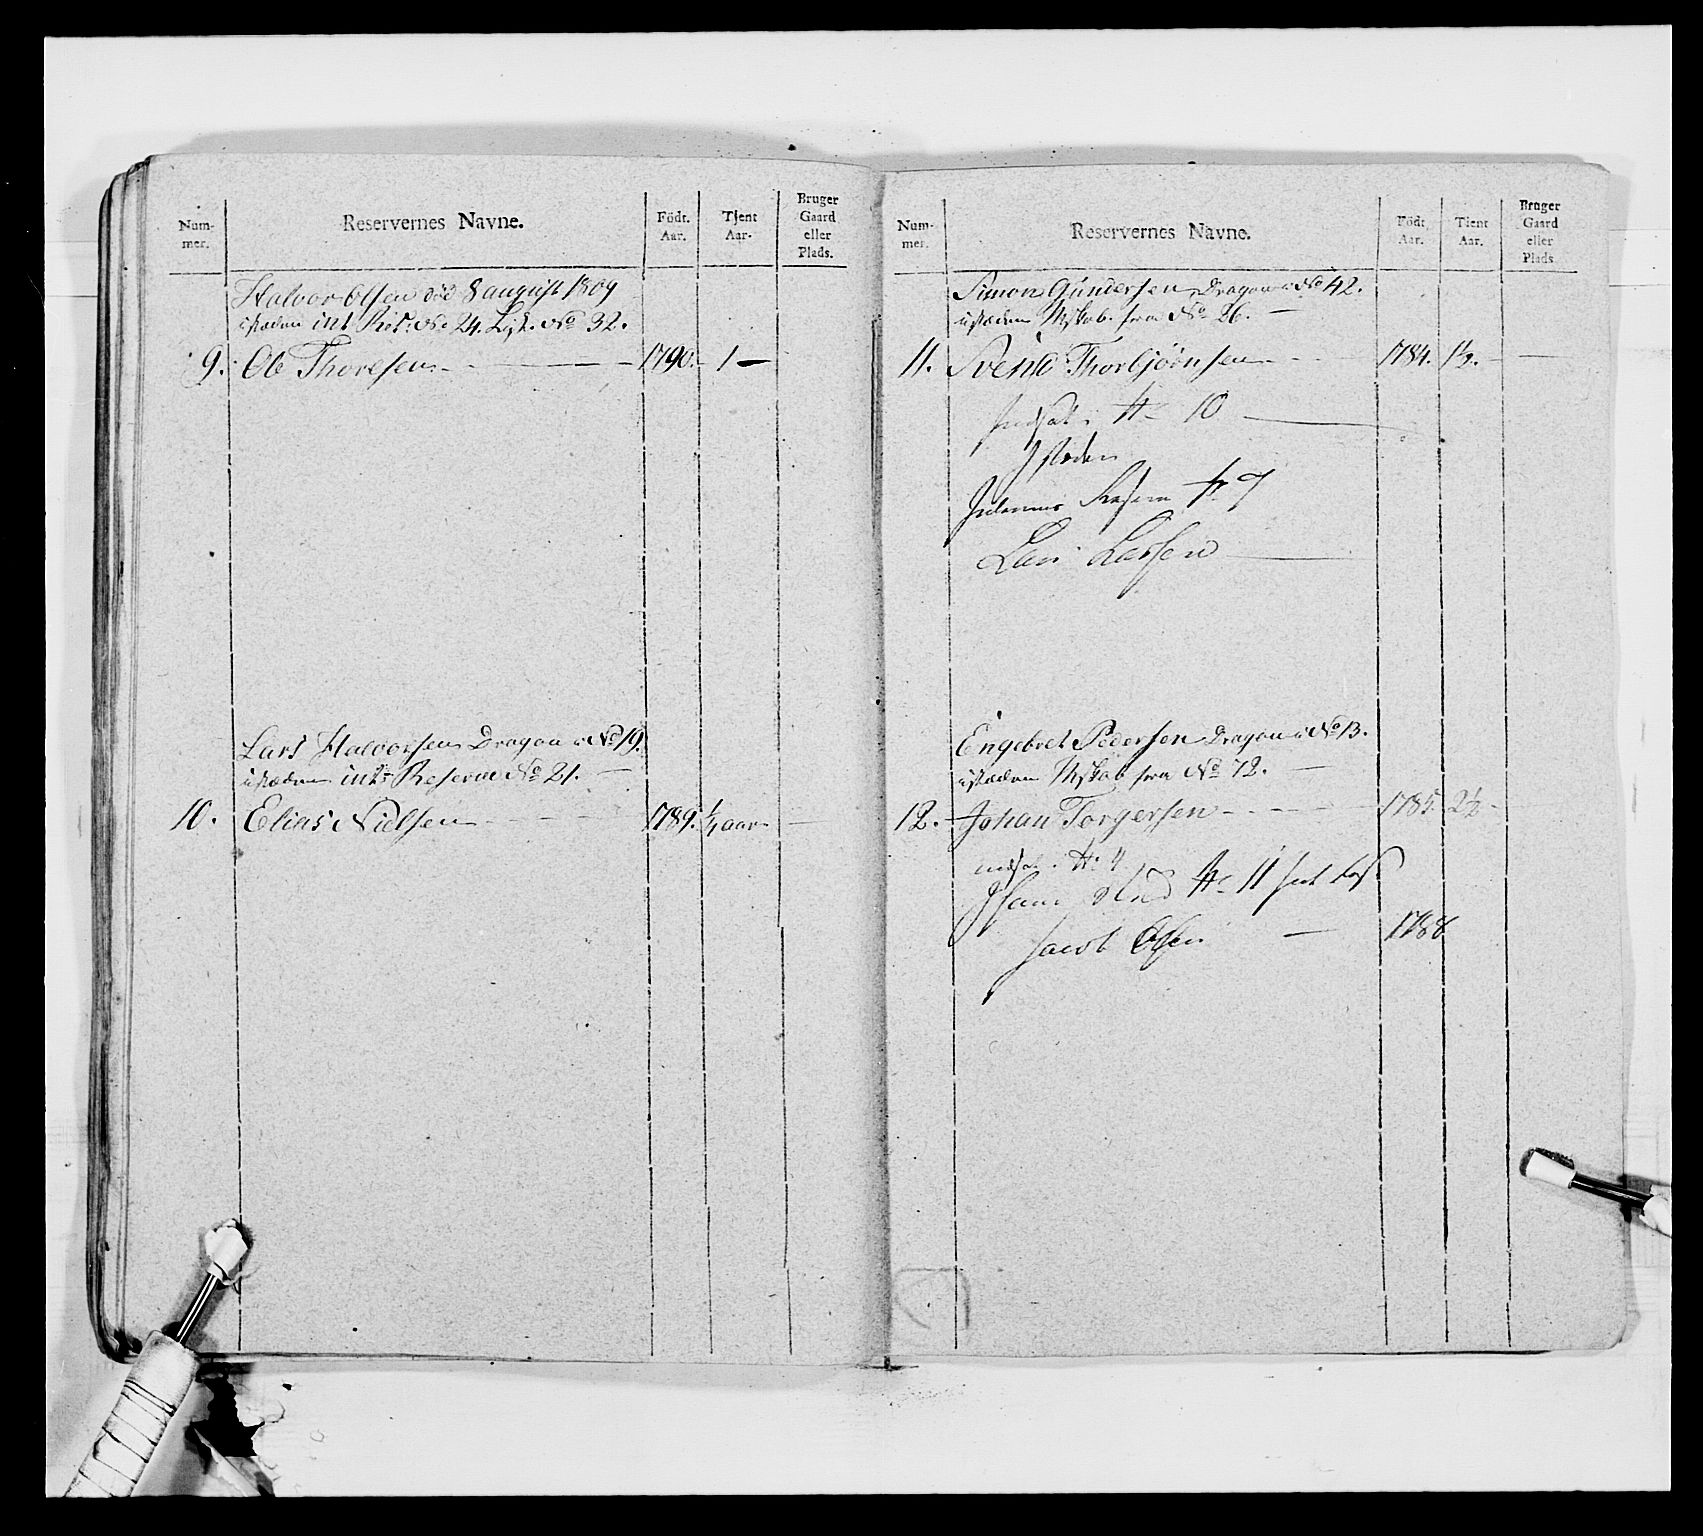 Num-
mer.
Reservernes Navne.
Födt.
Aar.
Tjent
Aar.
Bruger
Gaard
eller
Plads.
Halvor Olsen död 8 august 1809
istæden int. Res: No 24. List. No 32.
9. Ole Thoresen 1790. 1 —
Lars Halvorsen Dragon i No 19.
istæden int: Reserve No 21. —
10. Elias Nielsen 1789. 1/1 aar —
Num-
mer.
Reservernes Navne.
Födt
Aar.
Tient
Aar.
Bruger
Gaard
eller
Plads
Simon Gundersen Dragon i No 42.
istæden Mskab. fra No 26. —
11. Svend Thorbjörnsen 1784. 1½. —
Indsat i No 10
Istæden
No 7
Lars Larsen
Engebret Pedersen Dragon i No 13.
istæden Mskab fra No 72. —
12. Johan Torgersen 1785. 2½ -
indsat i No 4
No 11
Jacob Olsen — 1788